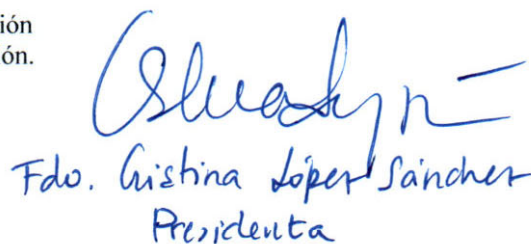 ión
ón.
Fdo. Cristina López Sánchez
Presidenta